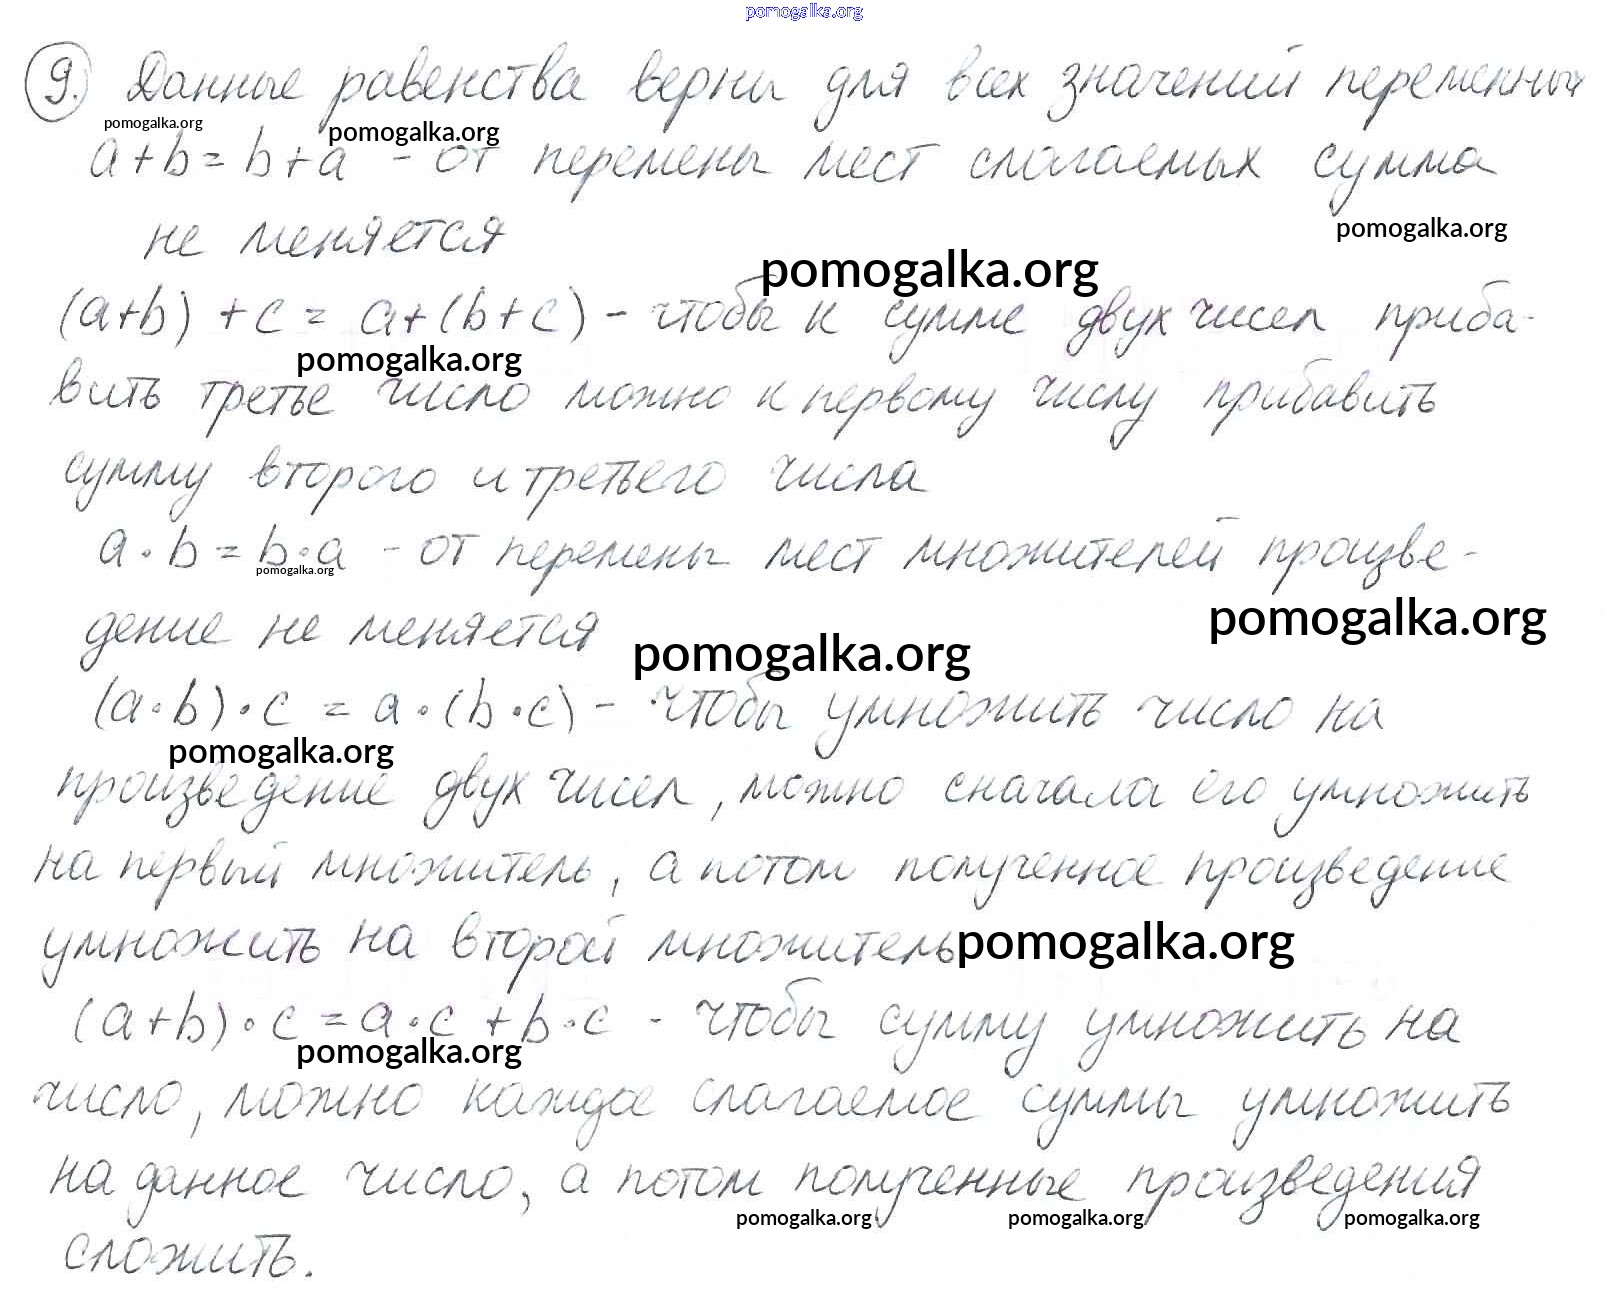 pomogalka.org
9. Данные равенства верны для всех значений переменных
pomogalka.org pomogalka.org
a+b=b+a - от перемены мест слагаемых сумма
не меняется pomogalka.org
pomogalka.org
(a+b)+c = a+(b+c) - чтобы к сумме двух чисел приба-
pomogalka.org
вить третье число можно к первому числу прибавить
сумму второго и третьего числа
a·b=b·a - от перемены мест множителей произве-
pomogalka.org
дение не меняется pomogalka.org
pomogalka.org
(a·b)·c = a·(b·c) - чтобы умножить число на
pomogalka.org
произведение двух чисел, можно сначала его умножить
на первый множитель, а потом полученное произведение
умножить на второй множитель pomogalka.org
(a+b)·c = a·c + b·c - чтобы сумму умножить на
pomogalka.org
число, можно каждое слагаемое суммы умножить
на данное число, а потом полученные произведения
pomogalka.org pomogalka.org pomogalka.org
сложить.